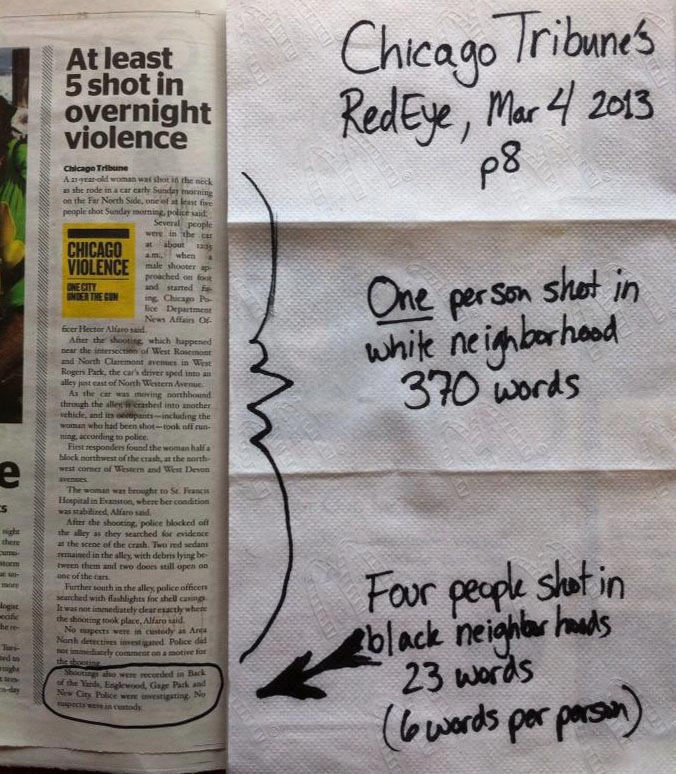 At least
5 shot in
overnight
violence
Chicago Tribune
A 21-year-old woman was shot in the neck
as she rode in a car early Sunday morning
on the Far North Side, one of at least five
people shot Sunday morning, police said.
Several people
were in the car
at about 12:35
a.m., when a
male shooter ap-
proached on foot
and started fir-
ing, Chicago Po-
lice Department
News Affairs Of-
ficer Hector Alfaro said.
CHICAGO
VIOLENCE
ONE CITY
UNDER THE GUN
After the shooting, which happened
near the intersection of West Rosemont
and North Claremont avenues in West
Rogers Park, the car's driver sped into an
alley just east of North Western Avenue.
As the car was moving northbound
through the alley, it crashed into another
vehicle, and its occupants—including the
woman who had been shot—took off run-
ning, according to police.
First responders found the woman half a
block northwest of the crash, at the north-
west corner of Western and West Devon
avenues.
The woman was brought to St. Francis
Hospital in Evanston, where her condition
was stabilized, Alfaro said.
After the shooting, police blocked off
the alley as they searched for evidence
at the scene of the crash. Two red sedans
remained in the alley, with debris lying be-
tween them and two doors still open on
one of the cars.
Further south in the alley, police officers
searched with flashlights for shell casings.
It was not immediately clear exactly where
the shooting took place, Alfaro said.
No suspects were in custody as Area
North detectives investigated. Police did
not immediately comment on a motive for
the shooting.
Shootings also were recorded in Back
of the Yards, Englewood, Gage Park and
New City. Police were investigating. No
suspects were in custody.
Chicago Tribune's
RedEye, Mar 4 2013
p8
One person shot in
white neighborhood
370 words
Four people shot in
black neighborhoods
23 words
(6 words per person)